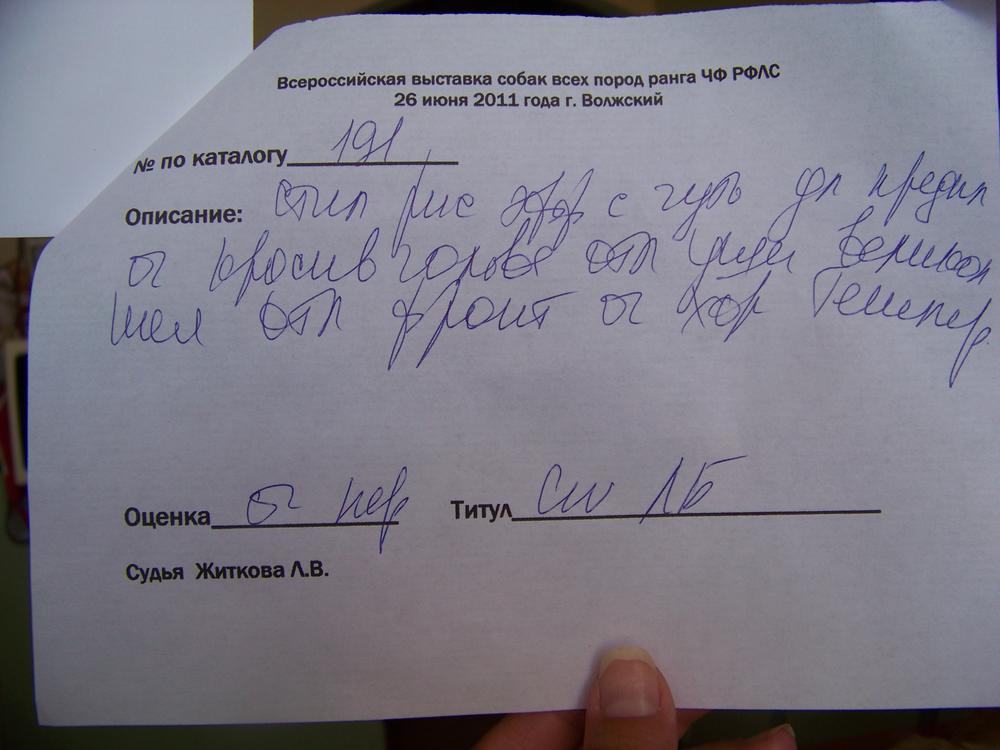 Всероссийская выставка собак всех пород ранга ЧФ РФЛС
26 июня 2011 года г. Волжский
№ по каталогу 191
Описание: с чуть
оч красив голова отл уши
шея отл фронт оч хор темпер
Оценка оч пер Титул CW ЛБ
Судья Житкова Л.В.